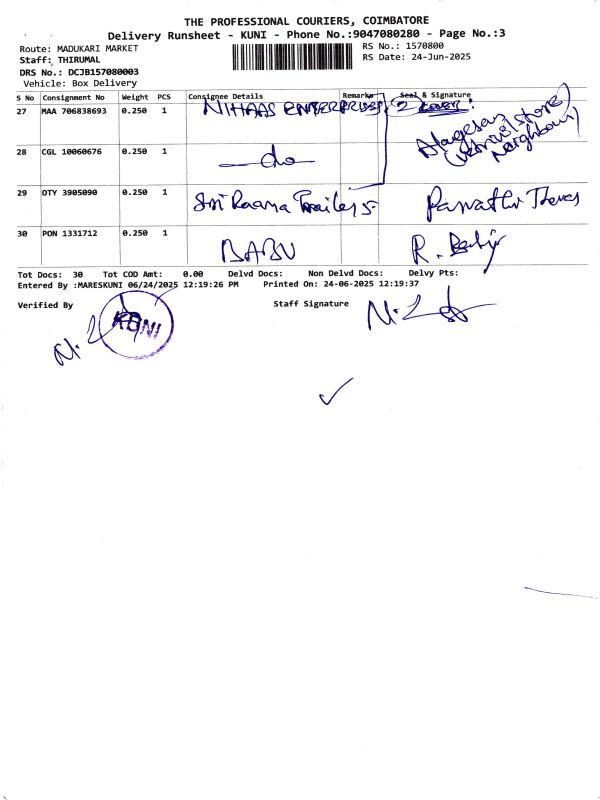 THE PROFESSIONAL COURIERS, COIMBATORE
Delivery Runsheet - KUNI - Phone No.:9047080280 - Page No.:3
Route: MADUKARI MARKET RS No.: 1570800
Staff: THIRUMAL RS Date: 24-Jun-2025
DRS No.: DCJB157080003
Vehicle: Box Delivery
S No Consignment No Weight PCS Consignee Details Remarks Seal & Signature
27 MAA 706838693 0.250 1 NIHAAS ENTERPRISES 2 cover
28 CGL 10060676 0.250 1 —do—
Neighbour)
29 OTY 3905090 0.250 1 Sri Raama
30 PON 1331712 0.250 1 BABU R.
Tot Docs: 30 Tot COD Amt: 0.00 Delvd Docs: Non Delvd Docs: Delvy Pts:
Entered By :MARESKUNI 06/24/2025 12:19:26 PM Printed On: 24-06-2025 12:19:37
Verified By Staff Signature
KUNI